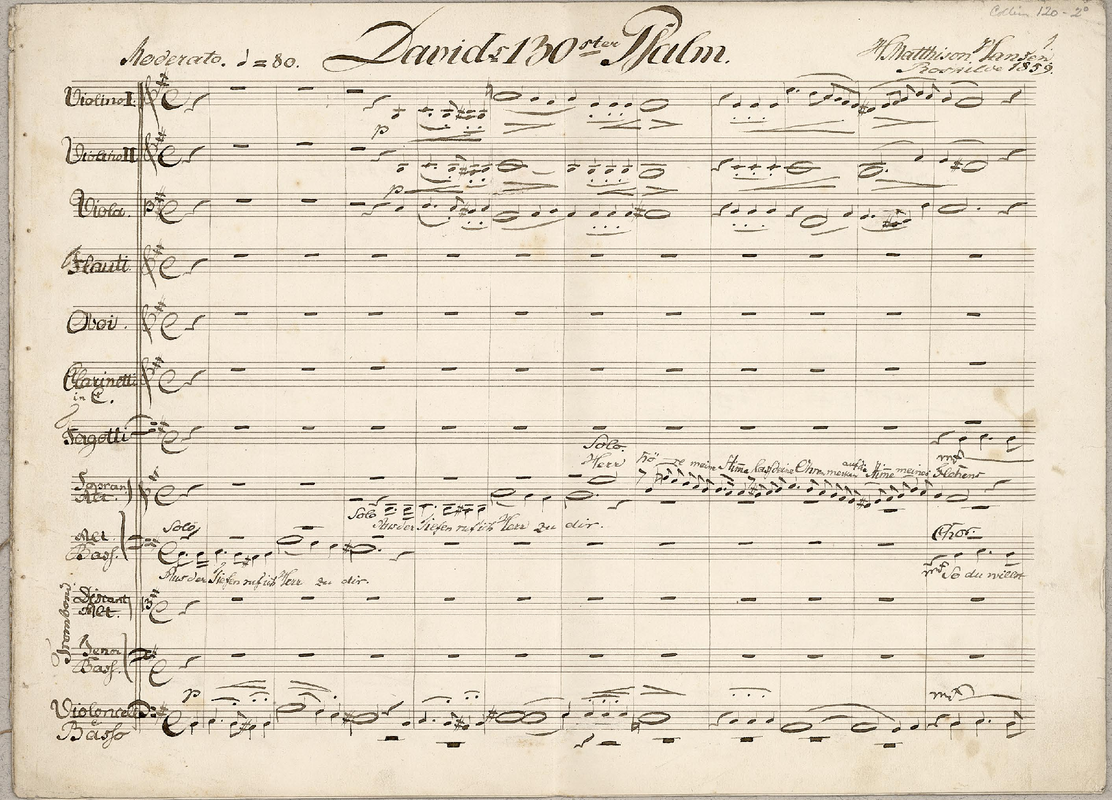 Collin 120-2°
Moderato. ♩=80. Davids 130ster Psalm. H Matthison Hansen
Roeskilde 1859.
Violino I.
p
Violino II
p
Viola.
Flauti
Oboi.
Clarinetti
in C.
Fagotti
mf
Solo.
Herr hö-re meine Stime lass deine Ohren merken auf die Stime meines Flehens
Sopran
Alt.
Solo
Aus der Tiefen ruf ich Herr zu dir.
Solo Chor.
Alt.
Bass.
Aus der Tiefen ruf ich Herr zu dir. mf So du willst
Tromboni
Discant
Alt.
Tenor
Bass.
p mf
Violoncello
e
Basso